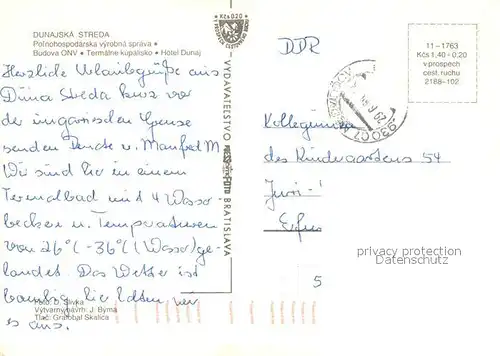 DUNAJSKÁ STREDA
Poľnohospodárska výrobná správa •
Budova ONV • Termálne kúpalisko • Hotel Dunaj
Herzliche Urlaubsgrüße aus
Duna Streda kurz vor
der ungarischen Grenze
senden Renate u. Manfred M
Wir sind hier in einem
Termalbad mit 4 Wasser-
becken u. Temperaturen
von 26°C - 36°C (Wasser) ge-
landet. Das Wetter ist
hier
es aus.
Foto: D. Slivka
Výtvarný návrh: J. Byrna
Tlač: Grafobal Skalica
Kčs 0,20
VYDAVATEĽSTVO
BRATISLAVA
DDR
11-1763
Kčs 1,40 + 0,20
v prospech
cest. ruchu
2188-102
930 07
Kolleginnen
des Kindergartens 54
Juri-
privacy protection
www.ansichtskarten-center.de
5